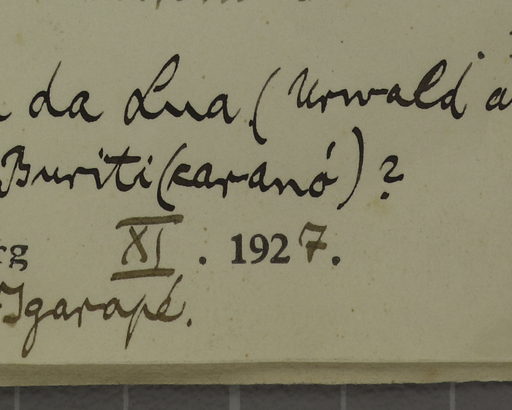 da Lua (Urwald a
Buriti (caranó)?
rg XI. 1927.
Igarapé.